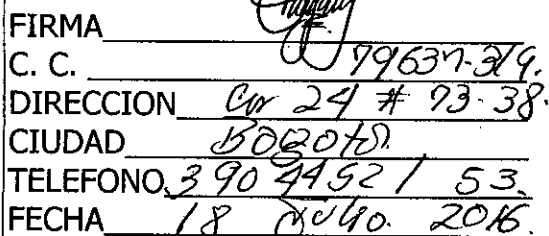 FIRMA
C. C. 79637-319.
DIRECCION Cr 24 # 73-38.
CIUDAD Bogotá.
TELEFONO. 390 4452 / 53.
FECHA 18 Julio. 2016.